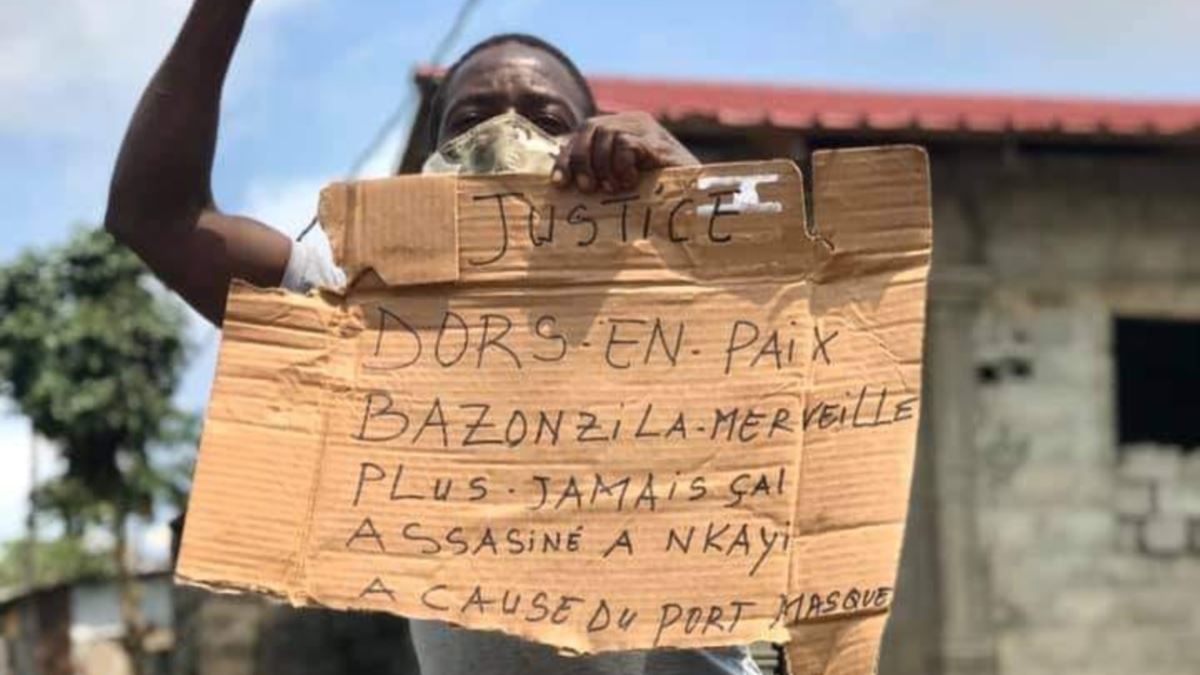 JUSTICE
DORS-EN-PAIX
BAZONZILA-MERVEILLE
PLUS-JAMAIS ÇA!
ASSASINÉ A NKAYI
A CAUSE DU PORT MASQUE